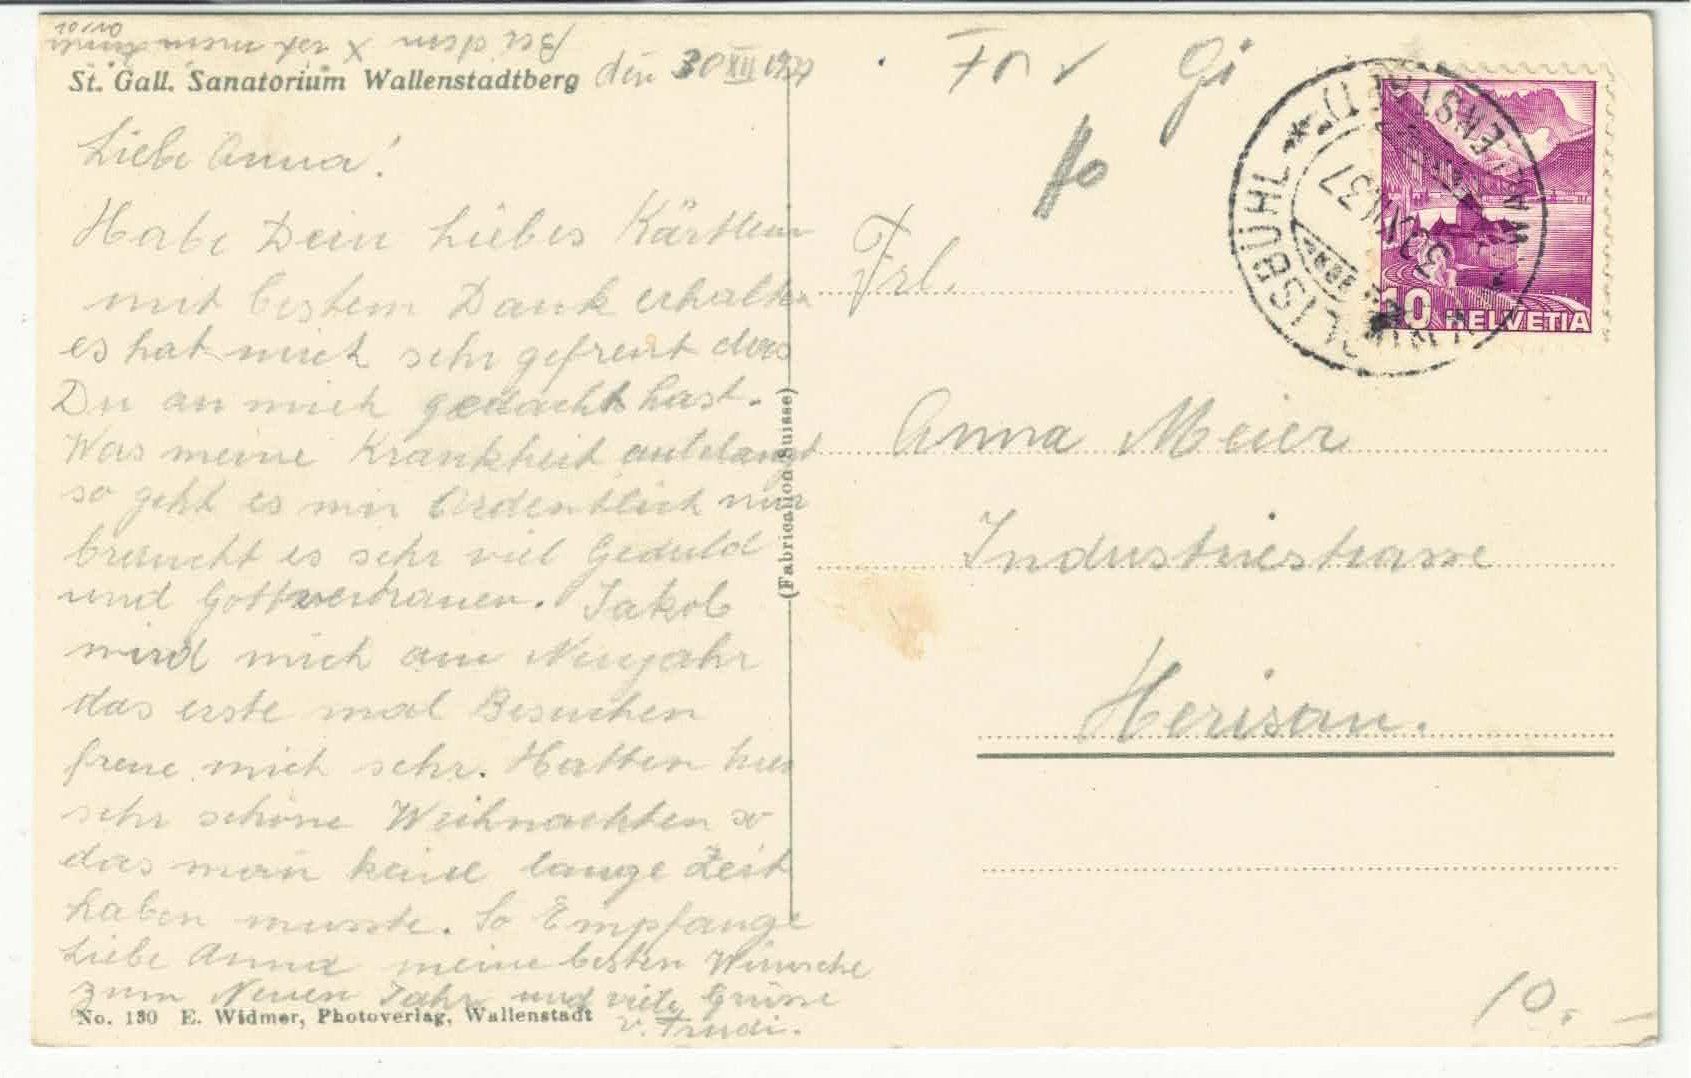 Bei dem X ist mein
St. Gall. Sanatorium Wallenstadtberg den 30 XII 1937
Liebe Anna!
Habe Dein liebes Kärtlein
mit bestem Dank erhalten
es hat mich sehr gefreut das
Du an mich gedacht hast.
Was meine Krankheit anbelangt
so geht es mir Ordentlich nur
braucht es sehr viel Geduld
und Gottvertrauen. Jakob
wird mich am Neujahr
das erste mal Besuchen
freue mich sehr. Hatten hier
sehr schöne Weihnachten so
das man keine lange Zeit
haben musste. So Empfange
Liebe Anna meine besten Wünsche
zum Neuen Jahr und viele Grüsse
v. Trudi.
No. 130 E. Widmer, Photoverlag, Wallenstadt
(Fabrication Suisse)
Gi
Frl.
Anna Meier
Industriestrasse
Herisau.
10.-
10 HELVETIA